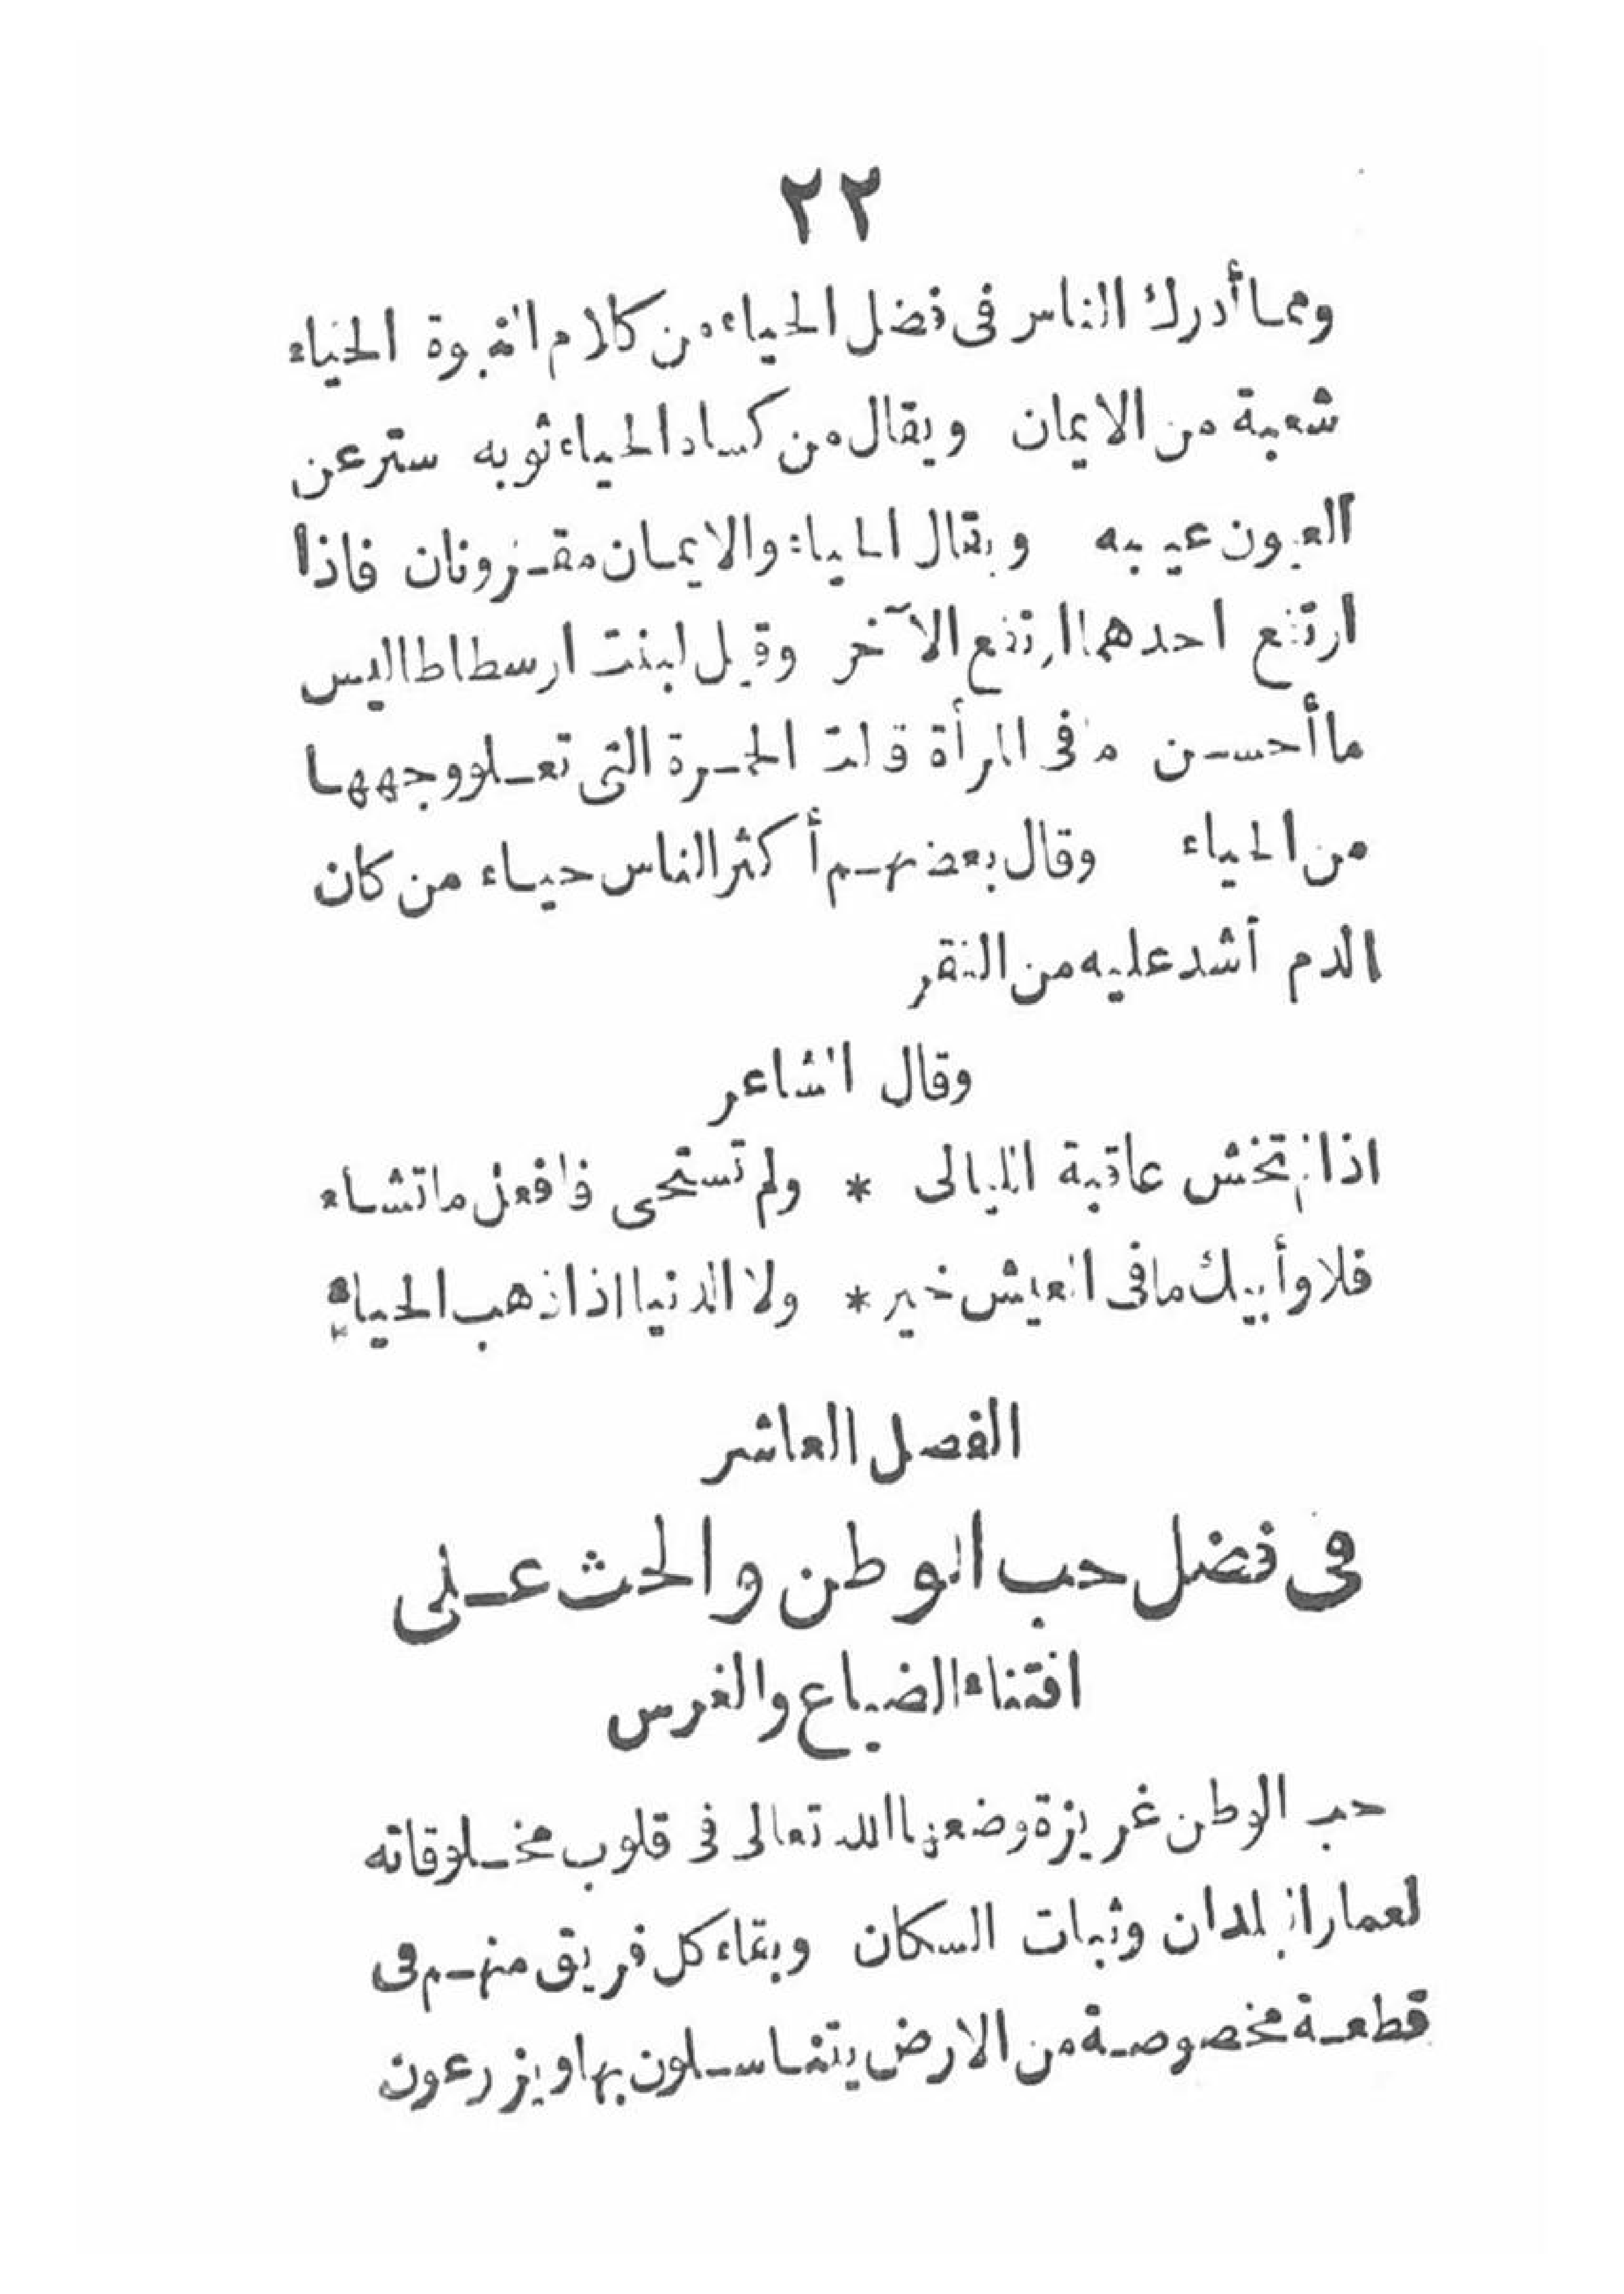 ٢٢
ومما أدرك الناس فى فضل الحياء من كلام النبوة الحياء
شعبة من الايمان ويقال من كساه الحياء ثوبه ستر عن
العيون عيبه ويقال الحياء والايمان مقرونان فاذا
ارتفع احدهما ارتفع الآخر وقيل لبنت ارسطاطاليس
ما أحسن ما فى المرأة قالت الحمرة التى تعلو وجهها
من الحياء وقال بعضهم أكثر الناس حياء من كان
الدم أشد عليه من الفقر
وقال الشاعر
اذا لم تخش عاقبة الليالى * ولم تستحى فافعل ما تشاء
فلا وأبيك ما فى العيش خير * ولا الدنيا اذا ذهب الحياء
الفصل العاشر
فى فضل حب الوطن والحث على
اقتناء الضياع والغرس
حب الوطن غريزة وضعها الله تعالى فى قلوب مخلوقاته
لعمار البلدان وثبات السكان وبقاء كل فريق منهم فى
قطعة مخصوصة من الارض يتناسلون بها ويزرعون